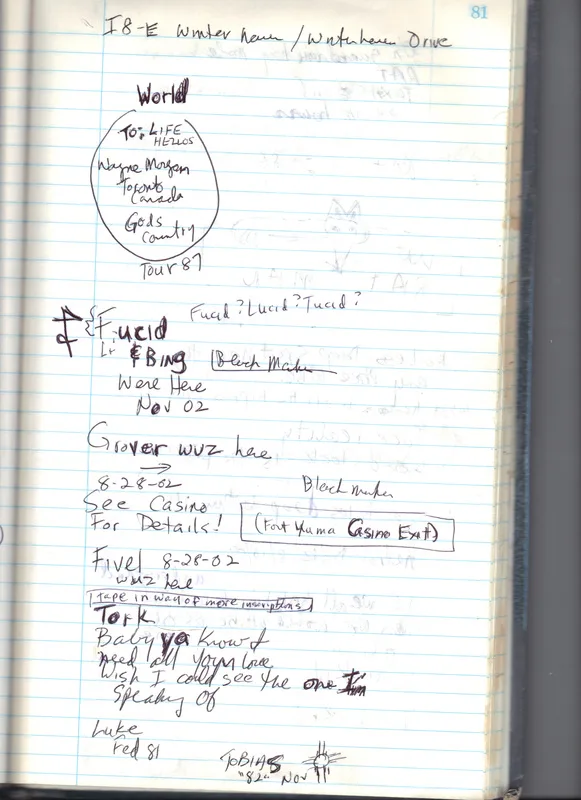 81
I8-E Winter Haven / Winterhaven Drive
World
To: LIFE
HELLOS
Wayne Morgan
Toronto
Canada
Gods
Country
Tour 87
Fucid? Lucid? Tucid?
Fucid
& BING
Black Marker
Were Here
Nov 02
Grover wuz here
8-28-02
Black marker
See Casino
For Details!
(Fort Yuma Casino Exit)
Fivel 8-28-02
wuz here
tape in way of more inscriptions
Tork
Baby ya know I
need all your love
Wish I could see the one I'm
Speaking of
Luke
Fed 81
TOBIAS
"82" Nov